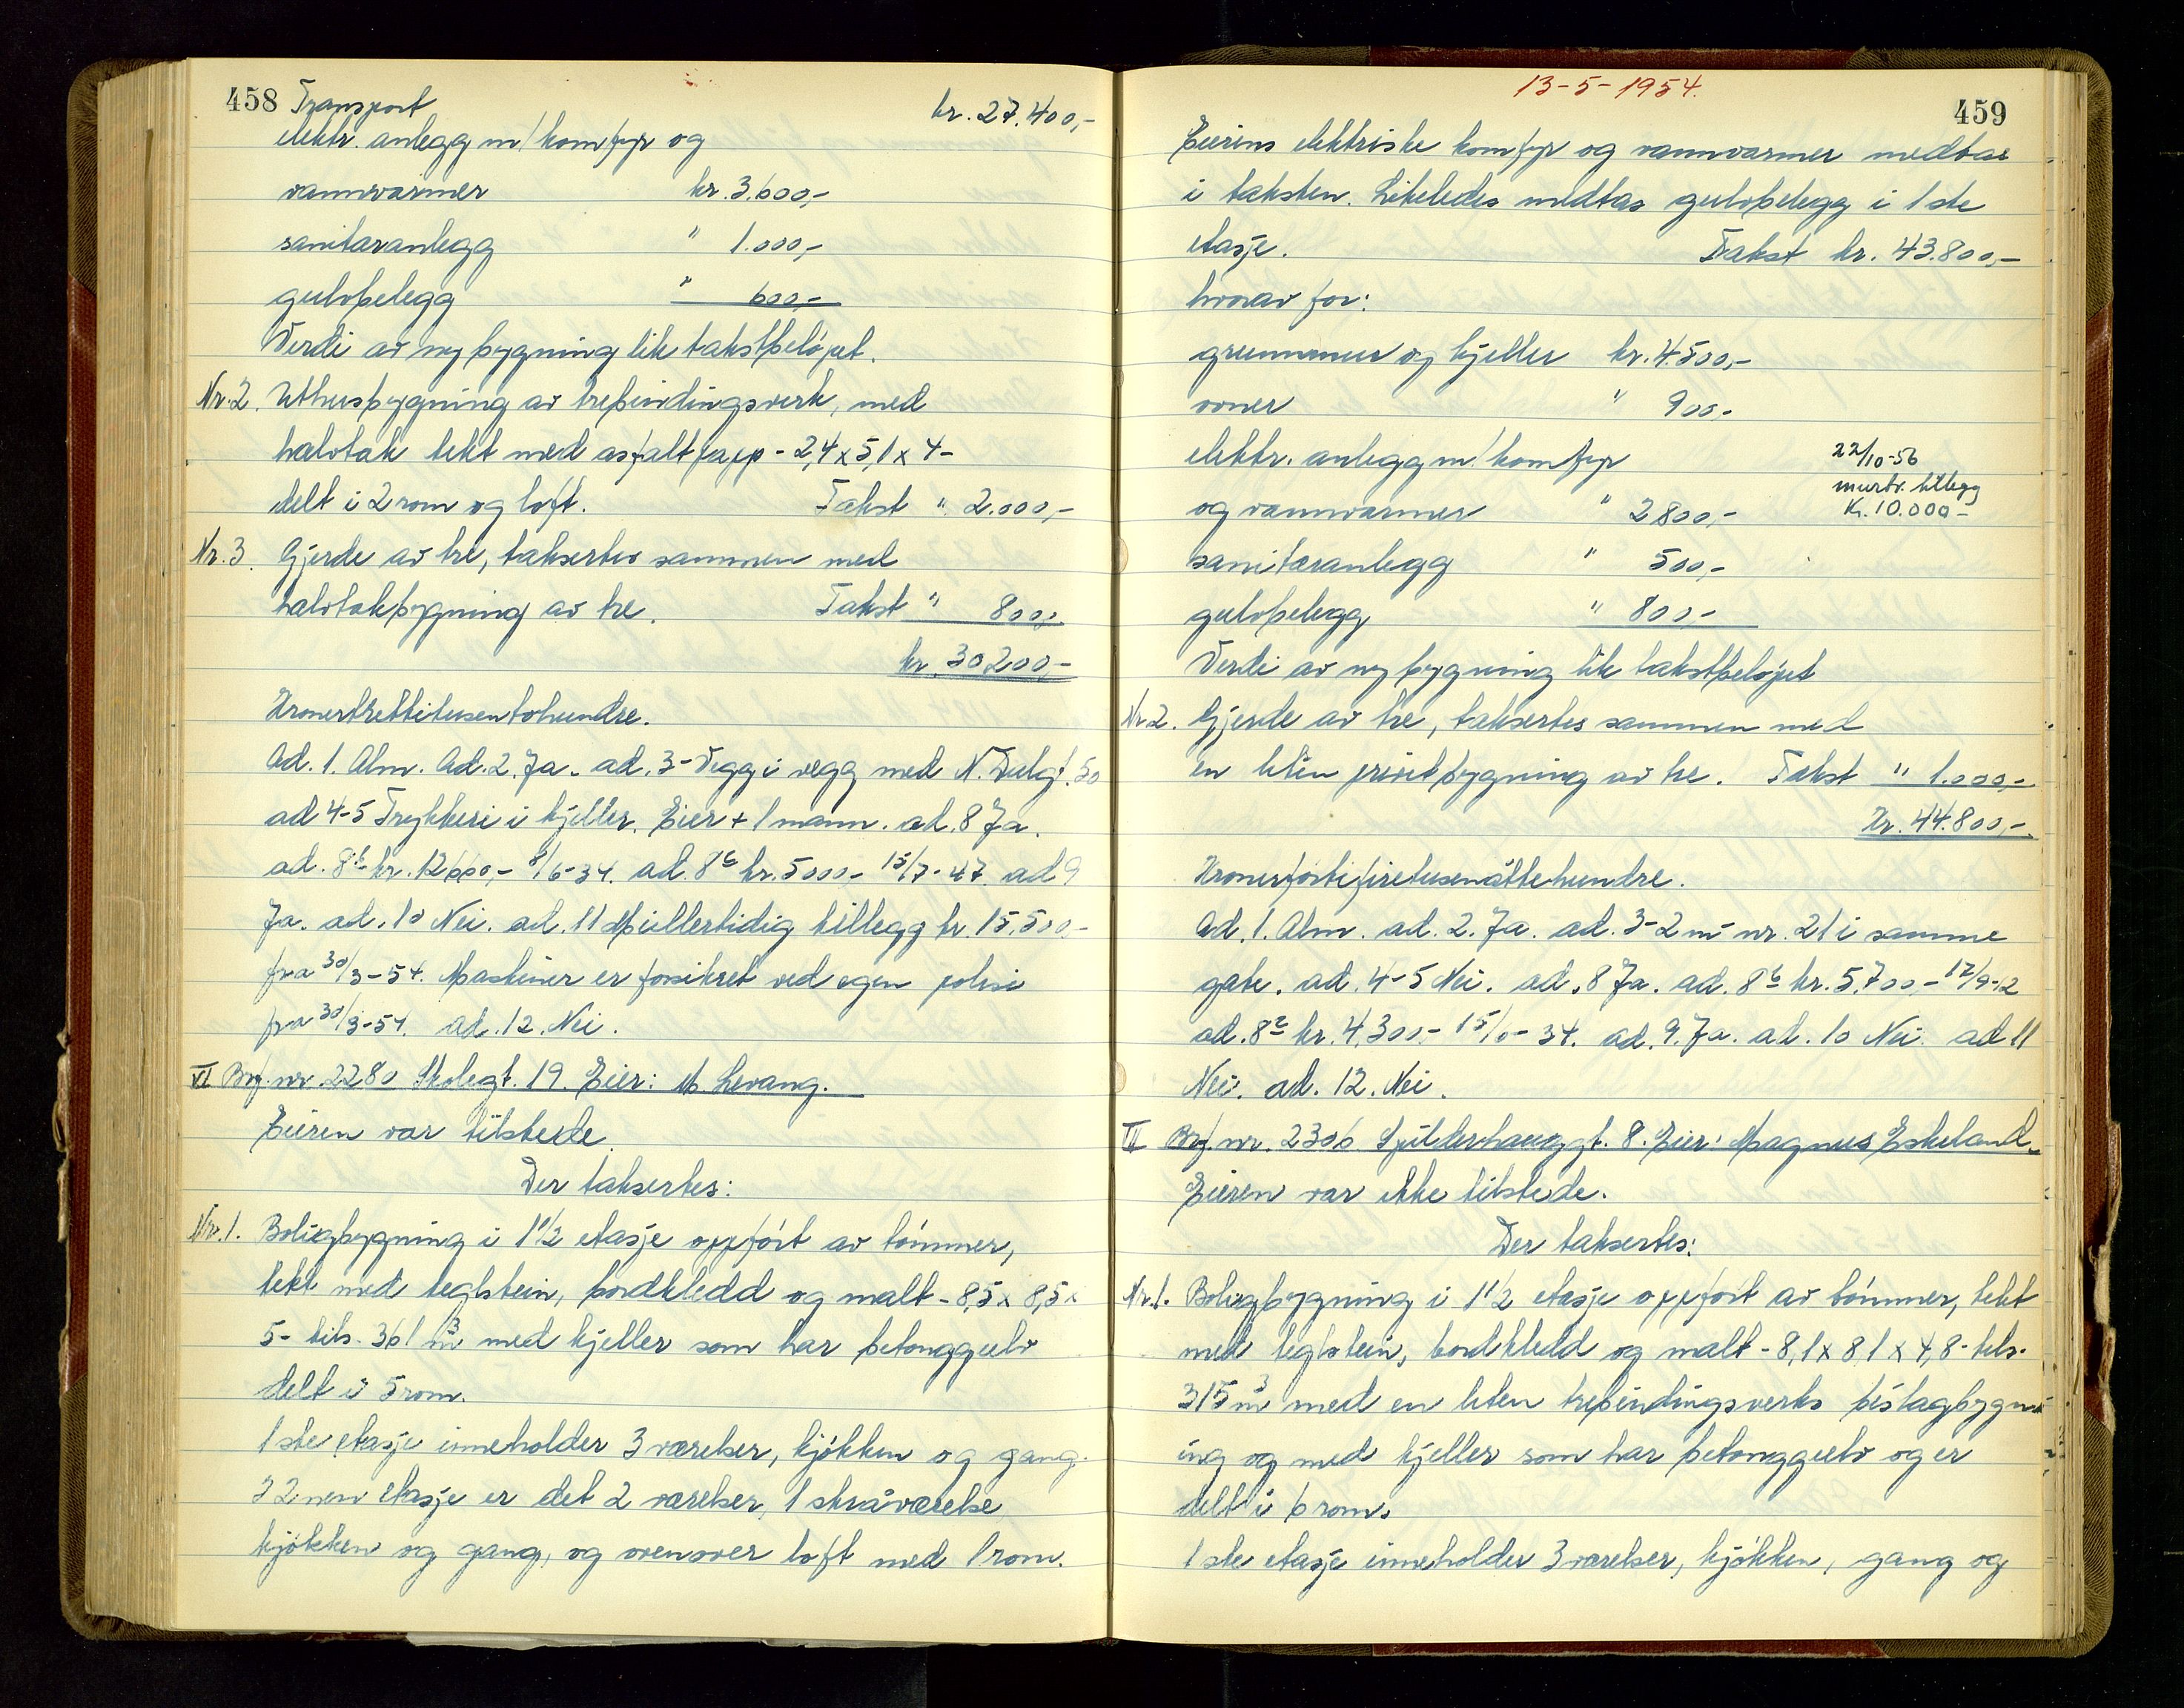 458 Transport kr. 27.400,-
elektr. anlegg m/komfyr og
vannvarmer kr. 3.600,-
sanitæranlegg " 1.000,-
gulvbelegg " 600,-
Verdi av ny bygning lik takstbeløpet.
Nr. 2. Uthusbygning av trebindingsverk, med
halvtak tekt med asfaltpapp - 2,4 x 5,1 x 4 -
delt i 2 rom og loft. Takst " 2.000,-
Nr. 3. Gjerde av tre, taksertes sammen med
halvtakbygning av tre. Takst " 800,-
kr. 30200,-
Kronertrettitusentohundre.
Ad. 1. Alm. Ad. 2. Ja. ad. 3 - Vegg i vegg med N. Dulgt. 50
ad 4-5 Trykkeri i kjeller. Eier + 1 mann. ad. 8 Ja.
ad. 8b kr. 12000,- 8/6-34. ad. 8c kr. 5000- 15/7-47. ad 9
Ja. ad. 10 Nei. ad. 11 Midlertidig tillegg kr. 15.500,-
fra 30/3-54. Maskiner er forsikret ved egen polise
fra 30/3-54. ad. 12. Nei.
VI Brf. nr. 2280 Skolegt. 19. Eier: M. Levang.
Eieren var tilstede.
Der taksertes:
Nr. 1. Boligbygning i 1 1/2 etasje oppført av tømmer,
tekt med teglstein, bordkledd og malt - 8,5 x 8,5 x
5 - tils. 361 m3 med kjeller som har betonggulv
delt i 5 rom.
1ste etasje inneholder 3 værelser, kjøkken og gang.
I 2nen etasje er det 2 værelser, 1 skråværelse
kjøkken og gang, og ovenover loft med 1 rom.
13-5-1954.
459
Eierens elektriske komfyr og vannvarmer medtas
i taksten. Likeledes medtas gulvbelegg i 1ste
etasje. Takst kr. 43.800,-
hvorav for:
grunnmur og kjeller kr. 4.500,-
ovner " 900,-
elektr. anlegg m/komfyr
og vannvarmer " 2800,-
22/10-56
murtv. tillegg
Kr. 10.000-
sanitæranlegg " 500,-
gulvbelegg " 800,-
Verdi av ny bygning lik takstbeløpet
Nr. 2. Gjerde av tre, taksertes sammen med
en liten privetbygning av tre. Takst " 1.000,-
Kr. 44.800,-
Kronerførtifiretusenåttehundre.
Ad. 1. Alm. ad. 2. Ja. ad. 3 - 2 m - nr. 21 i samme
gate. ad. 4-5 Nei. ad. 8 Ja. ad. 8b kr. 5.700,- 12/9-12
ad. 8c kr. 4.300,- 15/6-34. ad. 9. Ja. ad. 10 Nei. ad 11
Nei. ad. 12. Nei.
VII Brf. nr. 2306 Spilderhauggt. 8. Eier: Magnus Eskeland.
Eieren var ikke tilstede.
Der taksertes:
Nr. 1. Boligbygning i 1 1/2 etasje oppført av tømmer, tekt
med teglstein, bordkledd og malt - 8,1 x 8,1 x 4,8 - tils.
315 m3 med en liten trebindingsverks bislagbygn-
ing og med kjeller som har betonggulv og er
delt i 6 rom.
1ste etasje inneholder 3 værelser, kjøkken, gang og